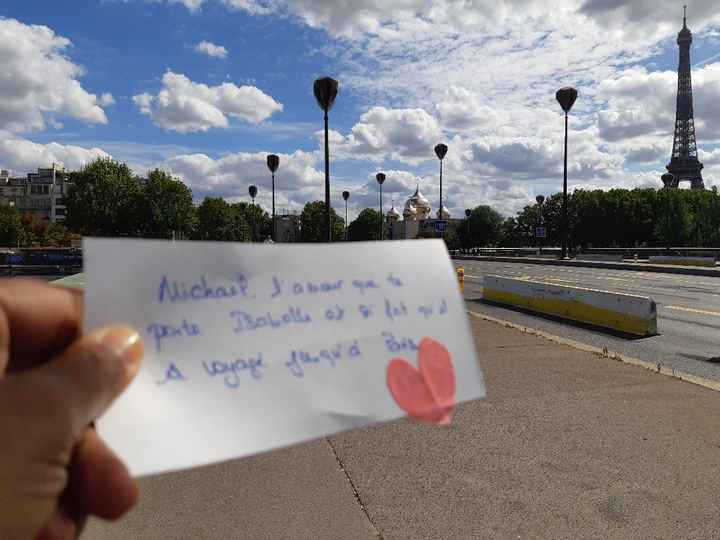 Michael, l'amour que te
porte Isabelle est si fort qu'il
a voyagé jusqu'à Paris